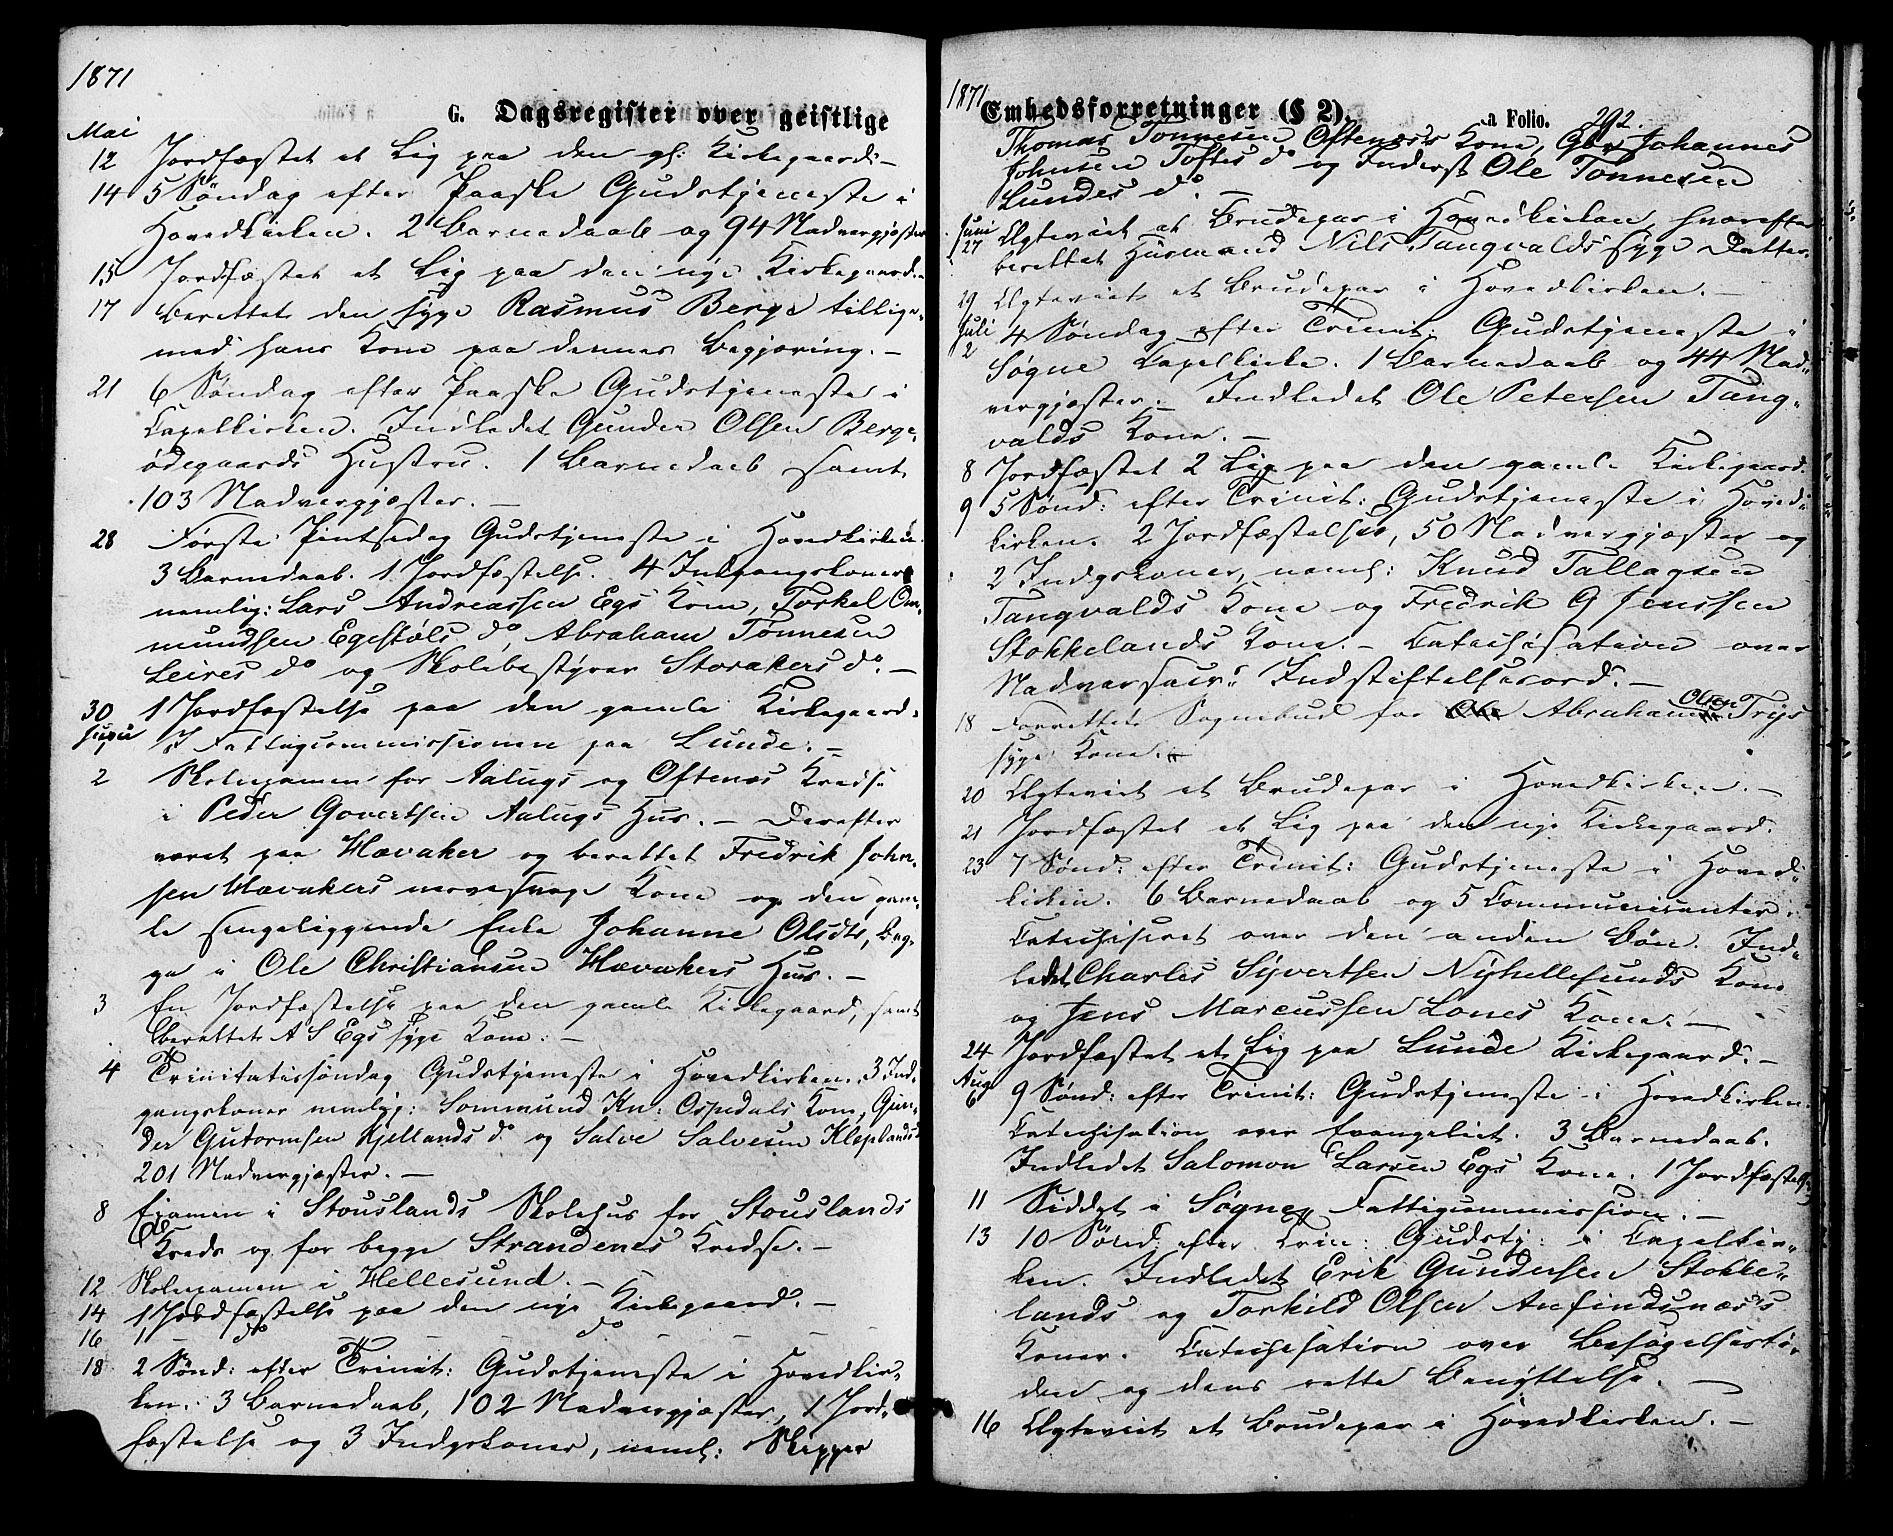 1871
G. Dagsregister over geistlige
Mai
12 Jordfæstet et Lig paa den gl: Kirkegaard.-
14 5 Søndag efter Paaske Gudstjeneste i
Hovedkirken. 2 Barnedaab og 94 Nadvergjæster
15 Jordfæstet et Lig paa den nye Kirkegaard.-
17 Berettet den syge Rasmus Berge tillige-
med hans Kone paa dennes Begjæring.-
21 6 Søndag efter Paaske Gudstjeneste i
Capelkirken. Indledet Gunder Olsen Berge-
ødegaards Hustru. 1 Barnedaab samt
103 Nadvergjæster.-
28 Første Pintsedag Gudstjeneste i Hovedkirken.
3 Barnedaab. 1 Jordfæstelse. 4 Indgangskoner
nemlig: Lars Andreassen Egs Kone, Torkel Om-
mundsen Egestøls do, Abraham Tønnesen
Leires do og Skolebestyrer Storakers do.-
30 1 Jordfæstelse paa den gamle Kirkegaard.
Juni
1 I Fattigcommissionen paa Lunde.-
2 Skoleexamen for Aalugs og Oftenæs Kreds
i Peder Govertsen Aalugs Hus.- Derefter
været paa Hævaker og berettet Fredrik John-
sen Hævakers svage Kone og den gam-
le sengeliggende Enke Johanne Olsdtr, beg-
ge i Ole Christiansen Hævakers Hus.-
3 En Jordfæstelse paa den gamle Kirkegaard, samt
berettet A S Egs syge Kone.-
4 Trinitatissøndag Gudstjeneste i Hovedkirken. 3 Ind-
gangskoner nemlig: Sommund Kn: Ospedals Kone, Gun-
der Gutormsen Kjellands do og Salve Salvesen Kleplands
201 Nadvergjæster.-
8 Examen i Stouslands Skolehus for Stouslands
Kreds og for begge Strandenes Kredse.-
12 Skoleexamen i Hellesund.-
14 1 Jordfæstelse paa den nye Kirkegaard.-
16 1 do - - do - - -
18 2 Sønd: efter Trinit: Gudstjeneste i Hovedkir-
ken. 3 Barnedaab, 102 Nadvergjæster, 1 Jord-
fæstelse og 3 Indgskoner, neml: Skipper
1871
Embedsforretninger (§ 2).
a Folio. 292.
Thomas Tønnesen Oftenæs's Kone, Gbr Johannes
Johnsen Toftes do og Inderst Ole Tønnesen
Lundes do.
Juni
27 Ægteviet et Brudepar i Hovedkirken, hvorefter
berettet Husmand Nils Tangvalds syge Datter.
29 Ægteviet et Brudepar i Hovedkirken.-
Juli
2 4 Søndag efter Trinit: Gudstjeneste i
Søgne Capelkirke. 1 Barnedaab og 44 Nad-
vergjæster. Indledet Ole Petersen Tang-
valds Kone.-
8 Jordfæstet 2 Lig paa den gamle Kirkegaard.
9 5 Sønd: efter Trinit: Gudstjeneste i Hoved-
kirken. 2 Jordfæstelser, 50 Nadvergjæster og
2 Indgskoner, neml: Knud Tallagsen
Tangvalds Kone og Fredrik G Jenssen
Stokkelands Kone.- Catechisation over
Nadversacr: Indstiftelsesord.-
18 Forrettet Sognebud for Abraham Olsen Trys
syge Kone.-
20 Ægteviet et Brudepar i Hovedkirken.-
21 Jordfæstet et Lig paa den nye Kirkegaard.
23 7 Sønd: efter Trinit: Gudstjeneste i Hoved-
kirken. 6 Barnedaab og 5 Communicanter.
Catechiseret over den anden Bøn. Ind-
ledet Charles Syvertsen Nyhellesunds Kone
og Jens Marcussen Lones Kone.-
24 Jordfæstet et Lig paa Lunde Kirkegaard.-
Aug
6 9 Sønd: efter Trinit: Gudstjeneste i Hovedkirken.
Catechisation over Evangeliet. 3 Barnedaab.
Indledet Salomon Larsen Egs Kone. 1 Jordfæstelse
11 Siddet i Søgne Fattigcommission.-
13 10 Sønd: efter Trin: Gudstj: i Capelkir-
ken. Indledet Erik Gundersen Stokke-
lands og Torkild Olsen Anfindsnæs's
Koner. Catechisation over Besøgelsesti-
den og dens rette Benyttelse.-
16 Ægteviet et Brudepar i Hovedkirken.-